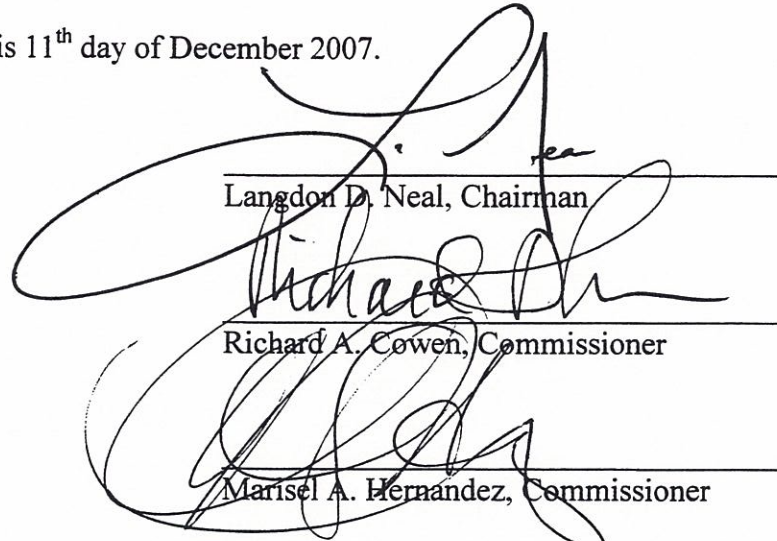 is 11th day of December 2007.
Langdon D. Neal, Chairman
Richard
Richard A. Cowen, Commissioner
Marisel A. Hernandez, Commissioner